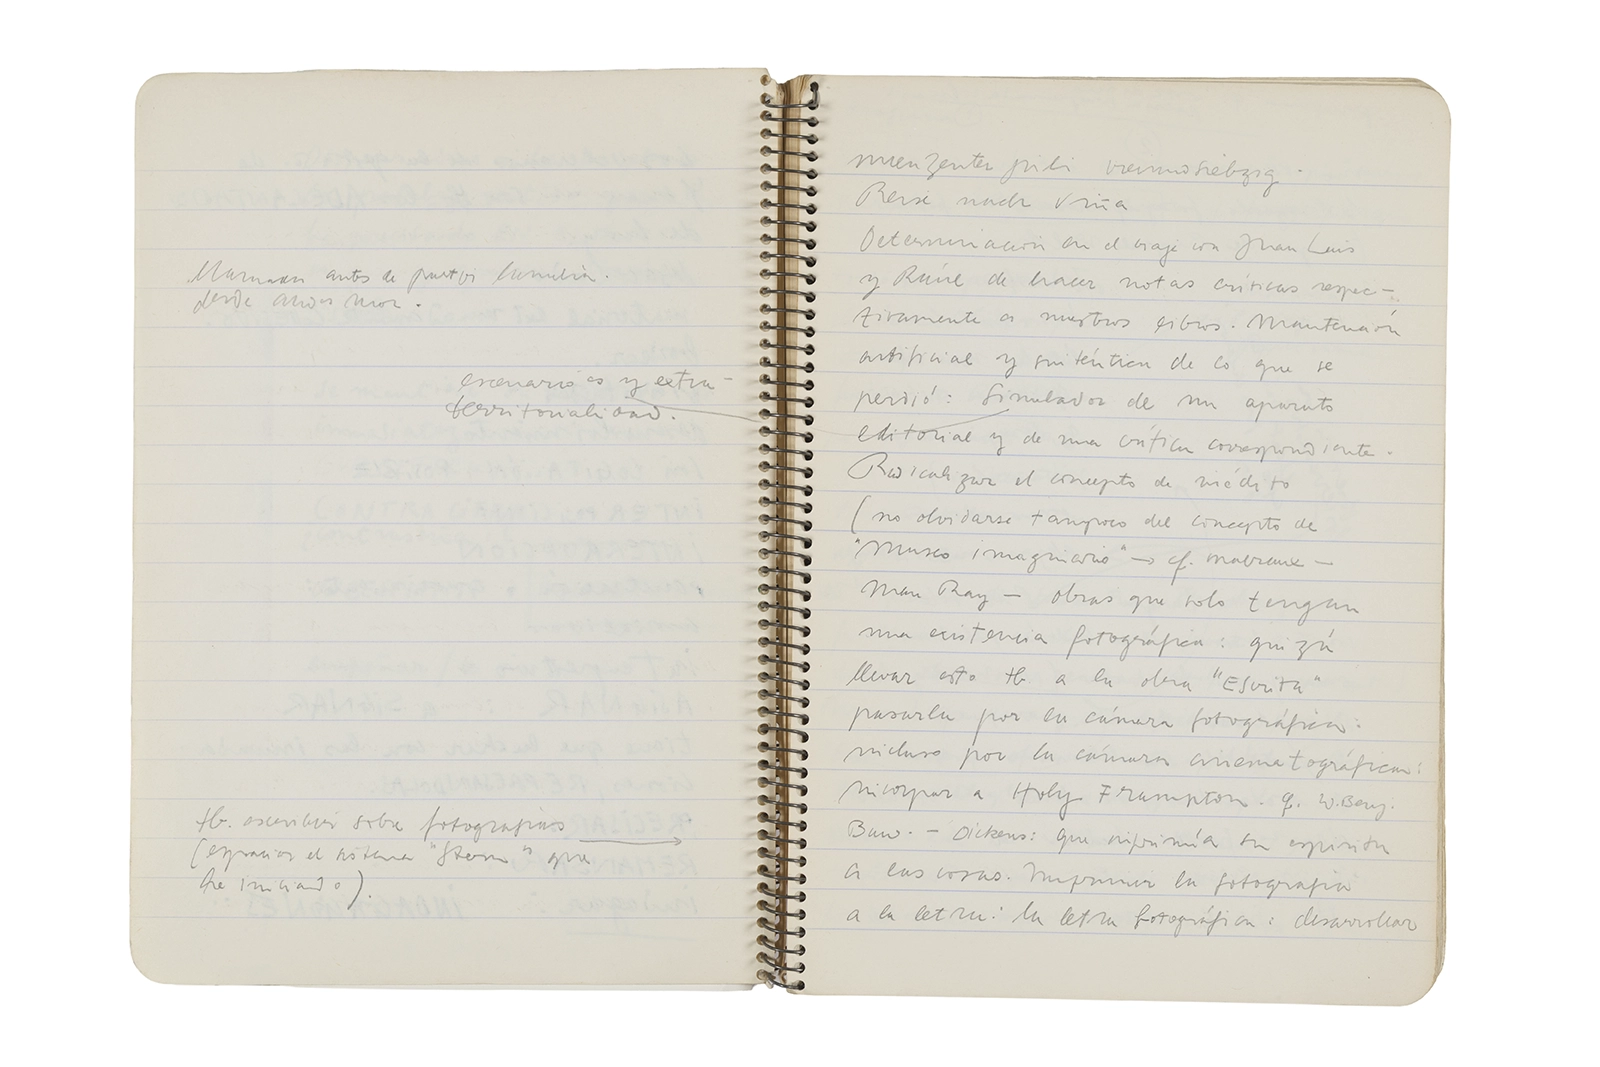 antes de partir familia.
desde
escenarios y extra-
territorialidad.
tb. escribir sobre fotografías
(expandir el sistema "Stern" que
he iniciado).
neunzenter juli vierundsiebzig.
Reise nach Viña
Determinación en el viaje con Juan Luis
y Raúl de hacer notas críticas respec-
tivamente a nuestros libros. Mantención
artificial y sintética de lo que se
perdió: Simulador de un aparato
editorial y de una crítica correspondiente.
Radicalizar el concepto de inédito
(no olvidarse tampoco del concepto de
"museo imaginario" → cf. malraux —
Man Ray — obras que solo tengan
una existencia fotográfica: quizá
llevar esto tb. a la obra "Escrita"
pasarla por la cámara fotográfica:
incluso por la cámara cinematográfica:
incorpar a Holy Frampton. cf. W. Benj.
Baud. — Dickens: que imprimía su espíritu
a las cosas. Imprimir la fotografía
a la letra: la letra fotográfica: desarrollar